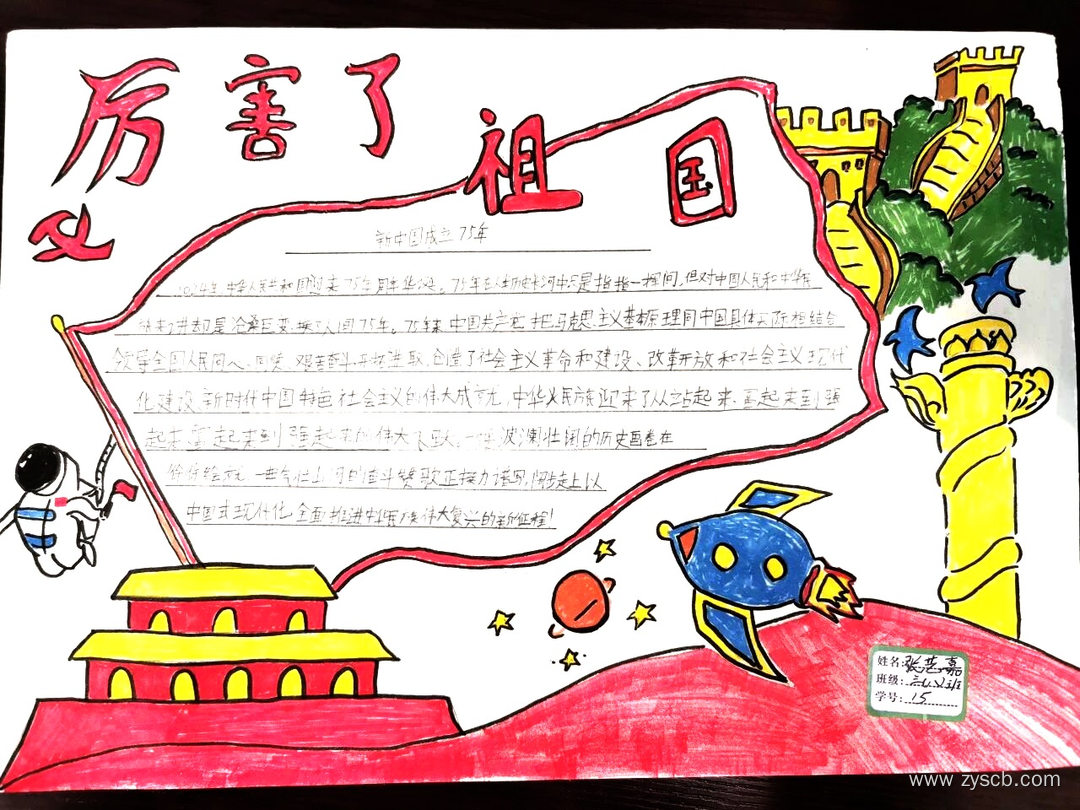 厉害了
祖国
新中国成立75年
2024年,中华人民共和国迎来75周年华诞。75年在人类历史长河中只是指一挥间,但对中国人民和中华民
沧桑巨变、换了人间75年。75年来,中国共产党把马克思主义基本原理同中国具体实际相结合
领导全国人民同心、同德、艰苦奋斗、开拓进取、创造了社会主义革命和建设、改革开放和社会主义现代
化建设、新时代中国特色社会主义的伟大成就,中华民族迎来了从站起来、富起来到强
起来、富起来到强起来的伟大飞跃,一幅波澜壮阔的历史画卷在
徐徐绘就,一曲气壮山河的奋斗赞歌正接力谱写,阔步走上以
中国式现代化全面推进中华民族伟大复兴的新征程!
姓名:张芷嘉
班级:
学号:15
www.zyscb.com